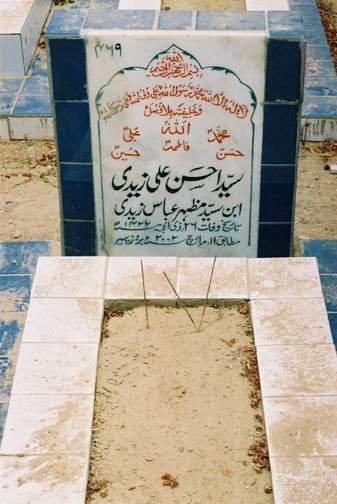 ۴۶۹
بسم اللہ الرحمن الرحیم
لا الہ الا اللہ محمد رسول اللہ علی ولی اللہ
وخلیفتہ بلا فصل
اللہ
محمدؐ علیؑ
فاطمہؑ
حسنؑ حسینؑ
سید احسن علی زیدی
ابن سید مظہر عباس زیدی
تاریخ وفات ۲۶ ذی الحجہ ۱۴۲۲
مطابق ۱۱ مارچ ۲۰۰۲